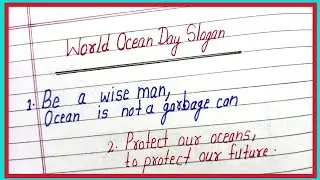 World Ocean Day Slogan
1. Be a wise man,
Ocean is not a garbage can
2. Protect our oceans,
to protect our future.